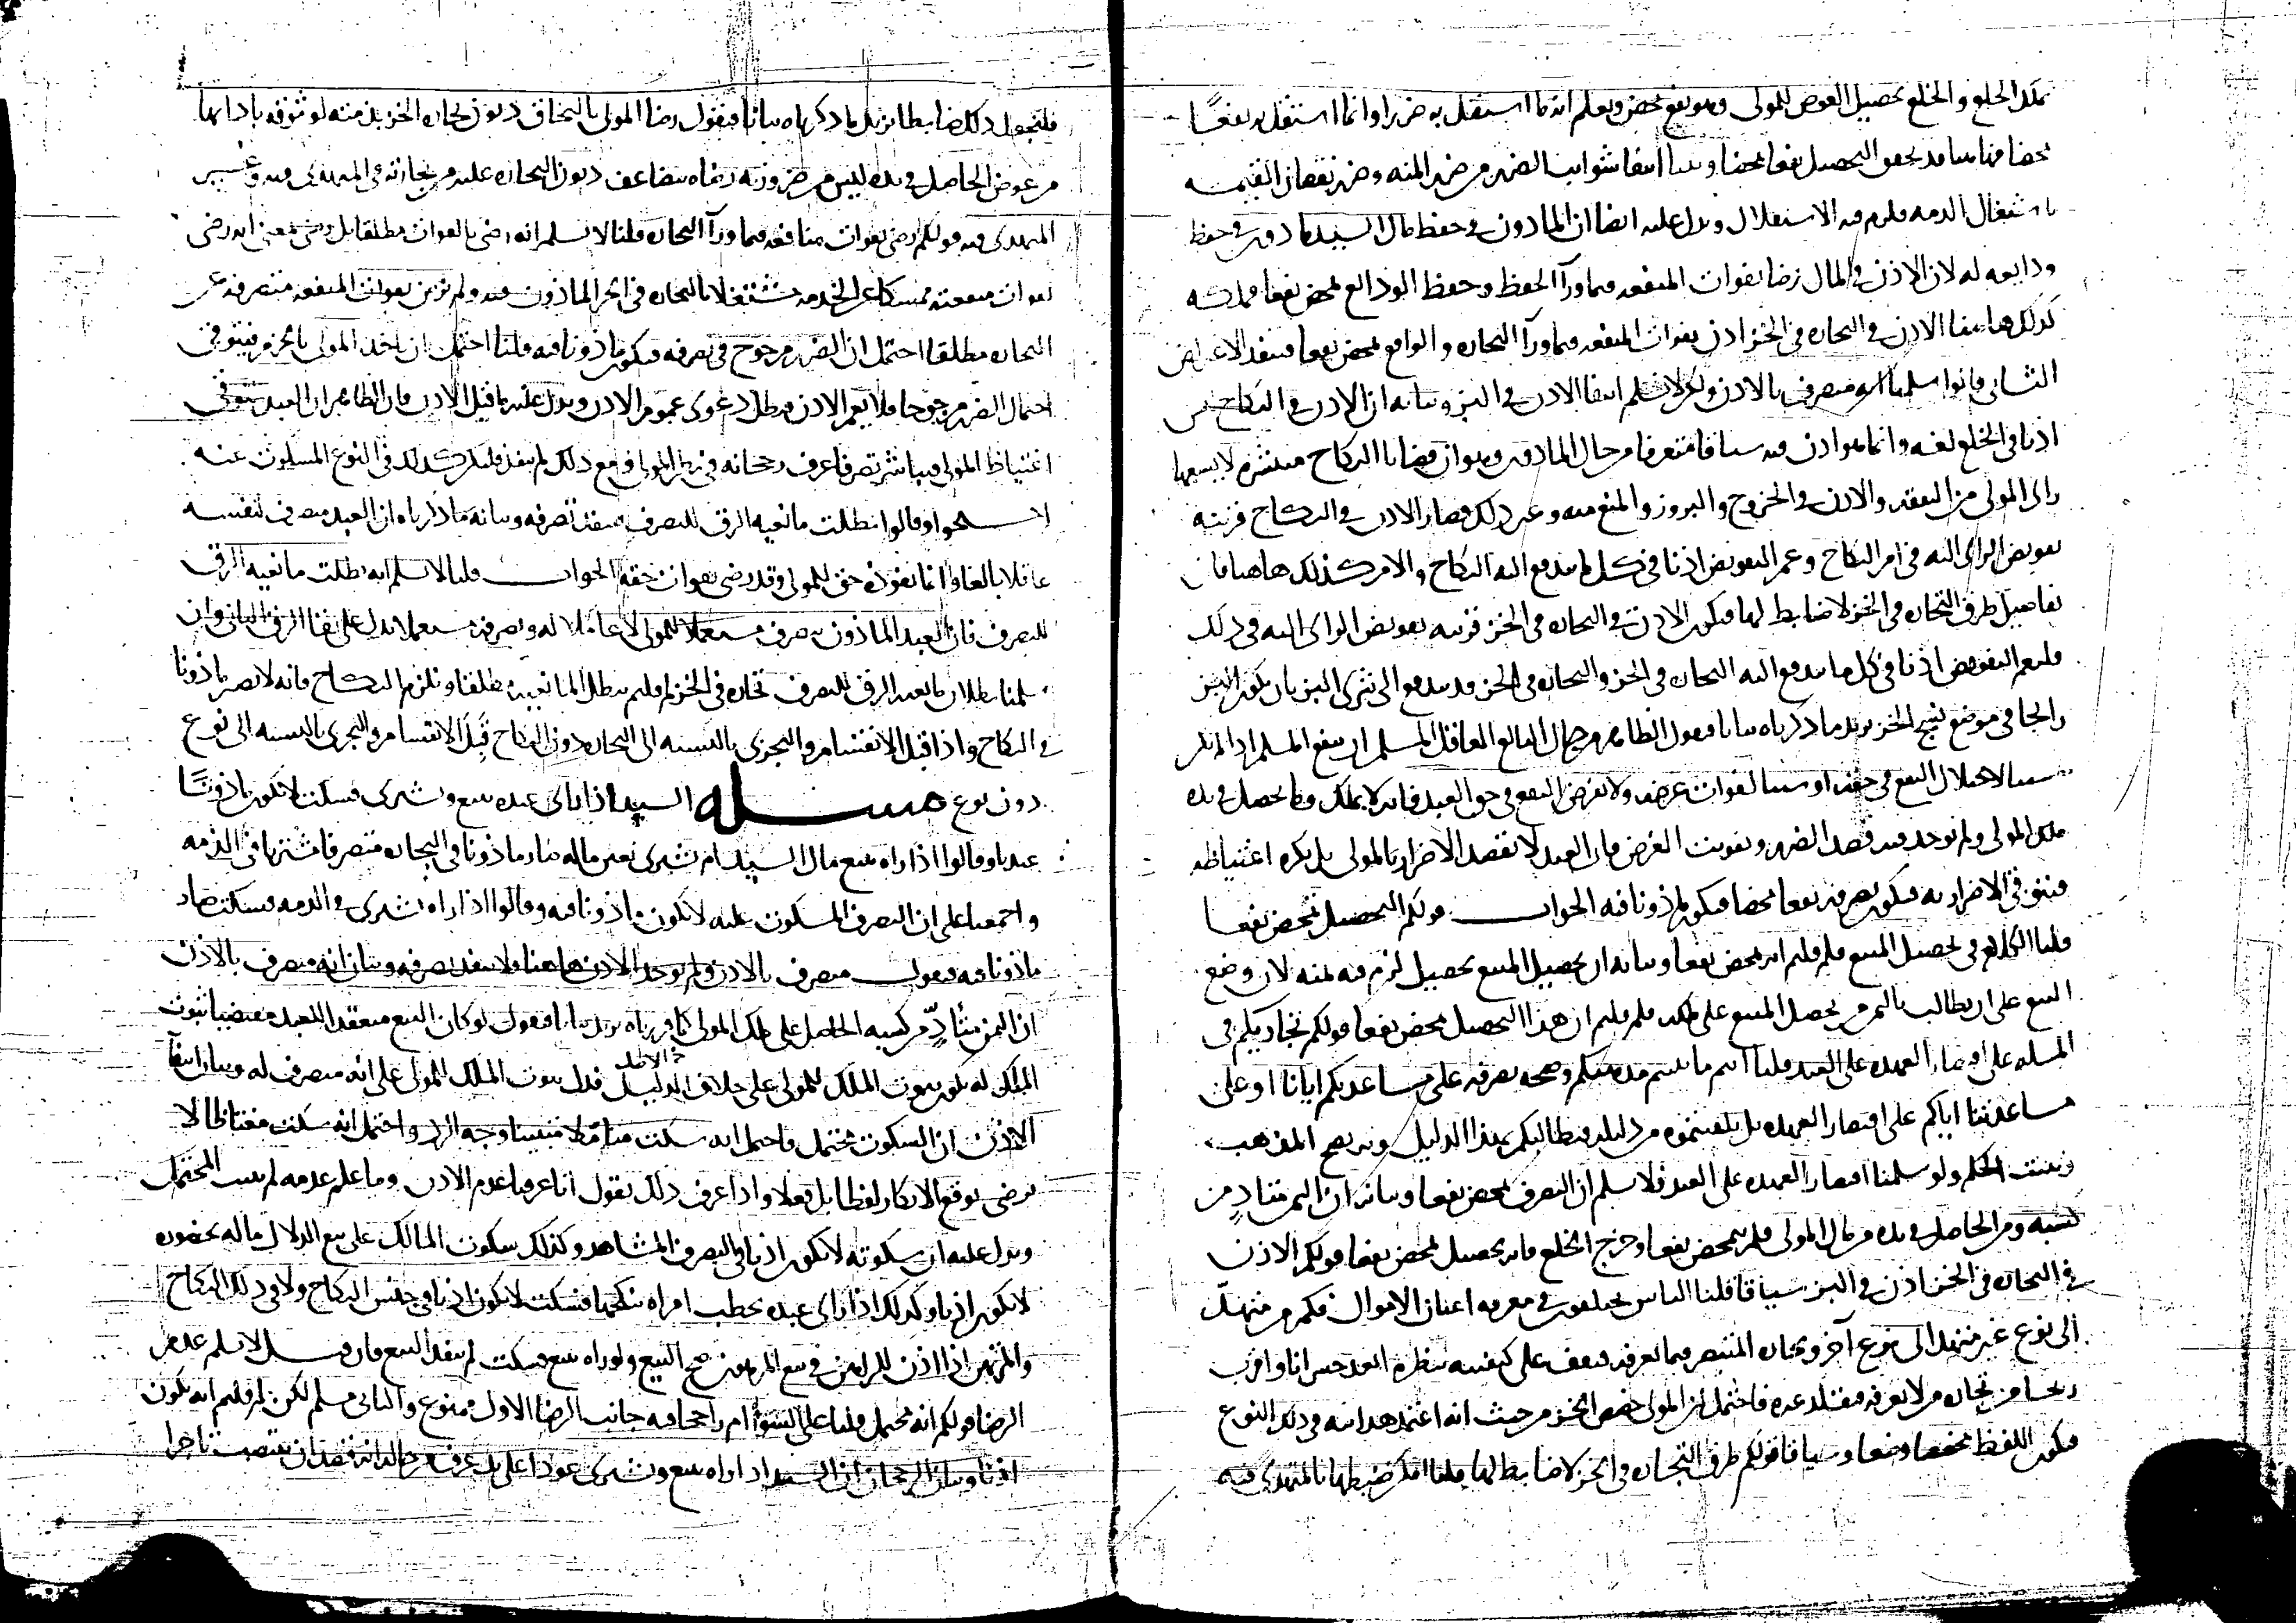 تملك الخلع والخلع تحصيل العوض للمولى وهو نفع محض ويعلم انه ما استقل به ضررا وانما استقل به نفعًا
محضا
باشتغال الذمه فلزم فيه الاستقلال ويدل عليه ايضا ان الماذون في حفظ مال السيد ماذون في حفظ
ودايعه له لان الاذن في المال رضا بفوات المنفعه فيما ورآ الحفظ وحفظ الودايع محض نفع
كذلك هاهنا الاذن في التجاره في الخز اذن بفوات المنفعه فيما ورآ التجاره والواقع محض نفع
الثاني قالوا سلمنا انه متصرف بالاذن ولكن لا نسلم انتفا الاذن في البز وبيانه ان الاذن في النكاح ليس
اذنا في الخلع لغه وانما هو اذن فيه سياقا متعرفا من حال الماذون وهو ان قضايا النكاح منتشره لا يسعها
راى المولى من العقد والاذن في الخروج والبروز والمنع منه وغير ذلك فصار الاذن في النكاح قرينه
تفويض الراى اليه في امر النكاح وعم التفويض اذنا في كل ما يندفع اليه النكاح والامر كذلك هاهنا فان
تفاصيل طرق التجاره في الخز لا ضابط لها فيكون الاذن في التجاره في الخز قرينه تفويض الراى اليه في ذلك
فليعم التفويض اذنا في كل ما يندفع اليه التجاره في الخز والتجاره في الخز قد يندفع الى شرى البز بان يكون البز
رائجا في موضع نسج الخز يزيد ما ذكرناه بيانا فنقول الظاهر من حال البالغ العاقل المسلم ان ينفع المسلم اذا لم يكن
سببا لاختلال النفع في حقه او سببا لفوات غرضه ولا نفرض النفع في حق العبد فانه لا يملك وما يحصل في يده
ملك المولى ولم يوجد فيه قصد الضرر وتفويت الغرض فان العبد لا يقصد الاضرار بالمولى بل يكره اغتياظه
فيتوقى الاضرار به فيكون تصرفه نفعا محضا فيكون ماذونا فيه الجواب قولكم التحصيل محض نفع
قلنا الكلام في تحصيل المبيع فلم قلتم انه محض نفع وبيانه ان تحصيل المبيع تحصيل لزم فيه ثمنه لان وضع
البيع على ان يطالب بالثمن من يحصل المبيع على ملكه فلم قلتم ان هذا التحصيل محض نفع قولكم نجاريكم في
المسله على اقتصار العهده على العبد قلنا انتم ما بنيتم مذهبكم وصحه تصرفه على مساعدتكم ايانا او على
مساعدتنا اياكم على اقتصار العهده بل تلقيتموه من دليل فنطالبكم بهذا الدليل وبه يصح المذهب
ويثبت الحكم ولو سلمنا اقتصار العهده على العبد فلا نسلم ان التصرف محض نفع وبيانه ان الثمن متادٍ من
كسبه ومن الحاصل في يده من مال المولى فلم يتمحض نفعا وخرج الخلع فانه تحصيل محض نفع قولكم الاذن
في التجاره في الخز اذن في البز سياقا قلنا الناس يختلفون في معرفه اعيان الاموال فكم من متهدٍّ
الى نوع غير متهد الى نوع آخر وتجاره المتبصر فيما يعرفه فيقف على كيفيته بنظره ابعد خسرانا واقرب
ربحا من تجاره من لا يعرفه مقلد غيره فاحتمل ان المولى خصص الخز من حيث انه اعتمد هدايته في ذلك النوع
فيكون اللفظ مخصصا وضعا وسياقا قولكم طرق التجاره في الخز لا ضابط لها قلنا امكن ضبطها بالمتهدى فيه
فلنجعل ذلك ضابطا نزيل ما ذكرناه بيانا فنقول رضا المولى بالتحاق ديون تجاره الخز بذمته لوثوقه بادائها
من عوض الحاصل في يده ليس من ضرورته رضاه بتضاعف ديون التجاره عليه من تجارته في المتهدى فيه وغير
المتهدى فيه قولكم رضي بفوات منافعه فيما ورآ التجاره قلنا لا نسلم انه رضي بالفوات مطلقا بل رضي بمعنى انه رضي
بفوات منفعته ممسكا عن الخدمه مشتغلا بالتجاره في الخز الماذون فيه ولم يرض بفوات المنفعه منصرفه عن
التجاره مطلقا احتمل ان الضرر مرجوح في تصرفه فيكون ماذونا فيه قلنا احتمل ان ياخذ المولى بالحزم فيتوقى
احتمال الضرر مرجوحا فلا يعم الاذن فبطل دعوى عموم الاذن ويدل عليه ما قبل الاذن فان الظاهر ان العبد يتوقى
اغتياظ المولى فيباشر تصرفا عرف رجحانه في نظر المولى ومع ذلك لم ينفذ فليكن كذلك في النوع المسكوت عنه
احتجوا وقالوا بطلت مانعيه الرق للتصرف فينفذ تصرفه وبيانه ما ذكرناه ان العبد متصرف لنفسه
عاقلا بالغا وانما نفوذه حق للمولى وقد رضي بفوات حقه الجواب قلنا لا نسلم انه بطلت مانعيه الرق
للتصرف فان العبد الماذون يتصرف مستعملا للمولى لا عاملا له وتصرفه مستعملا يدل على بقا الرق الثاني وان
سلمنا بطلان مانعيه الرق للتصرف تجاره في الخز لم قلتم بطل المانعيه مطلقا ويلزم النكاح فانه لا يصير ماذونا
في النكاح واذا قبل الانقسام والتجزى بالنسبه الى التجاره دون النكاح قَبِلَ الانقسام والتجزى بالنسبه الى نوع
دون نوع مسله السيد اذا راى عبده يبيع ويشترى فسكت لا يكون ماذونًا
عندنا وقالوا اذا راه يبيع مال السيد ام يشترى بعين ماله صار ماذونا في التجاره متصرفا مشتريا في الذمه
واجمعنا على ان التصرف المسكوت عليه لا يكون ماذونا فيه وقالوا اذا راه يشترى في الذمه فسكت صار
ماذونا فيه فنقول متصرف بالاذن ولم يوجد الاذن هاهنا فلا ينفذ تصرفه وبيان انه متصرف بالاذن
ان الثمن متأدٍّ من كسبه الحاصل على ملك المولى كما قررناه نزيد بيانا فنقول لو كان البيع منعقدا للعبد مقتضيا ثبوت
الملك له يكون ثبوت الملك للمولى على خلاف الدليل فدل ثبوت الملك للمولى على انه متصرف له وبيان انتفآ
الاذن ان السكوت محتمل واحتمل انه سكت متاملا متبينا وجه الراى واحتمل انه سكت مغتاظا لا
يرضى بوقع الانكار لفظا بل فعلا واذا عرف ذلك نقول انا عرفنا عدم الاذن وما علم عدمه لم يثبت المحتمل
ويدل عليه ان سكوته لا يكون اذنا في التصرف المشاهد وكذلك سكوت المالك على بيع الدلال ماله بحضوره
لا يكون اذنا وكذلك اذا راى عبده يخطب امراه ينكحها فسكت لا يكون اذنا في جنس النكاح ولا في ذلك النكاح
والمرتهن اذا اذن للراهن في بيع المرهون صح البيع ولو راه يبيع فسكت لم ينفذ البيع فان قيل لا نسلم عدم
الرضا قولكم انه محتمل قلنا على السوآ ام راجحا فيه جانب الرضا الاول ممنوع والثاني مسلم لكن لم قلتم انه لا يكون
اذنا وبيان الرجحان ان السيد اذا راه يبيع ويشترى عودا على بدء عرف من حاله انه قصد ان ينتصب تاجرا